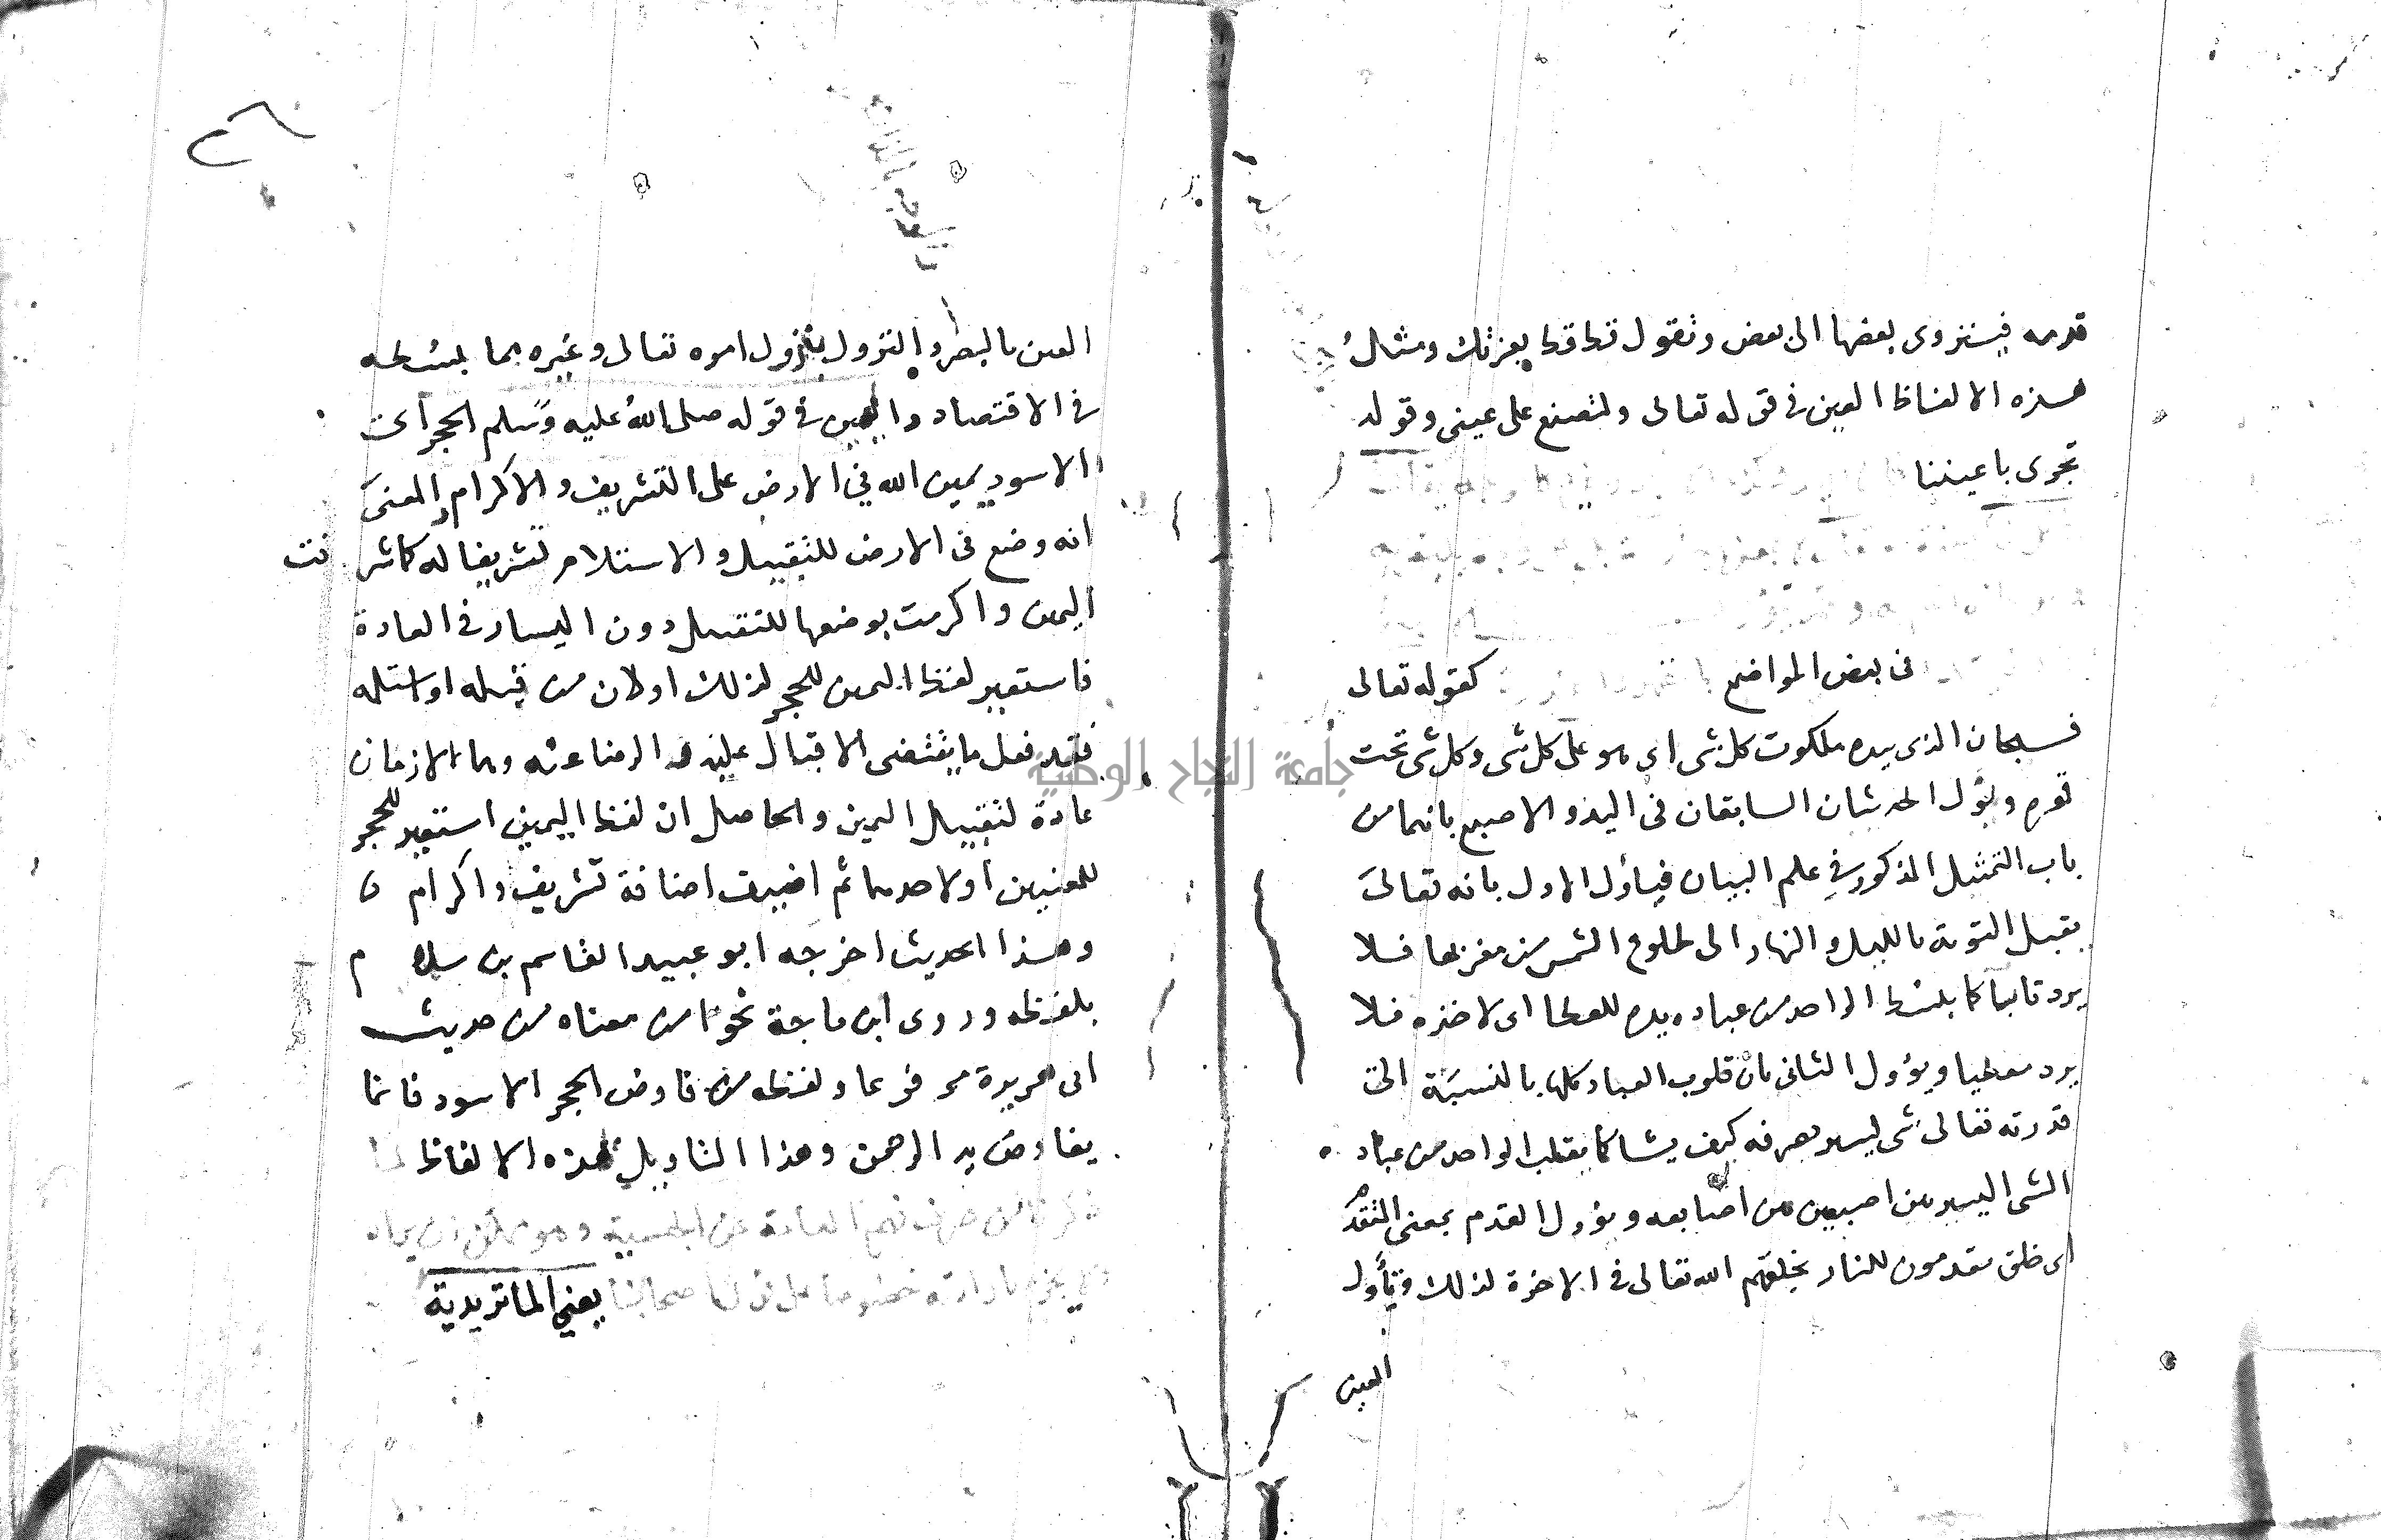 قدمه فينزوى بعضها الى بعض وتقول قط قط بعزتك ومثل
هذه الالفاظ العين فى قوله تعالى ولتصنع على عينى وقوله
تجرى باعيننا
فى بعض المواضع كقوله تعالى
فسبحان الذى بيده ملكوت كل شى اى هو على كل شى وكل شى تحت
ويؤل الحديثان السابقان فى اليد والاصبع بانهما من
باب التمثيل المذكور في علم البيان فيأول الاول بانه تعالى
يقبل التوبة بالليل والنهار الى طلوع الشمس من مغربها فلا
يرد تائبا كما يبسط الواحد من عباده يده للعطا اى لاخذه فلا
يرد معطيا ويؤول الثانى بان قلوب العباد كلها بالنسبة الى
قدرته تعالى شى يسير يصرفه كيف يشا كما يقلب الواحد من عباده
الشى اليسير بين اصبعين من اصابعه ويؤول القدم بمعنى التقدم
اى خلق مقدمون للنار يخلقهم الله تعالى فى الاخرة لذلك ويأول
العين
جامعة النجاح الوطنية
العين بالبصر والنزول بنزول امره تعالى وغيره مما بسطه
فى الاقتصاد واليمين فى قوله صلى الله عليه وسلم الحجر
الاسود يمين الله في الارض على التشريف والاكرام والمعنى
انه وضع فى الارض للتقبيل والاستلام تشريفا له كما شرفت
اليمين واكرمت بوضعها للتقبيل دون اليسار فى العادة
فاستعير لفظ اليمين للحجر لذلك اولان من قبله او استلمه
فقد فعل ما يقتضى الاقبال عليه والرضا عنه وهما لازمان
عادة لتقبيل اليمين والحاصل ان لفظ اليمين استعير للحجر
للمعنيين او لاحدهما ثم اضيفت اضافة تشريف واكرام
وهذا الحديث اخرجه ابو عبيد القاسم بن سلام
بلفظه وروى ابن ماجة نحوا من معناه من حديث
ابى هريرة مرفوعا ولفظه من فاوض الحجر الاسود فانما
يفاوض يد الرحمن وهذا التاويل لهذه الالفاظ لما
ذكرنا من صرف فهم العامة عن الجسمية وهو ممكن ان يراد
ولا يجزم بارادته خصوصا على قول اصحابنا يعني الماتريدية